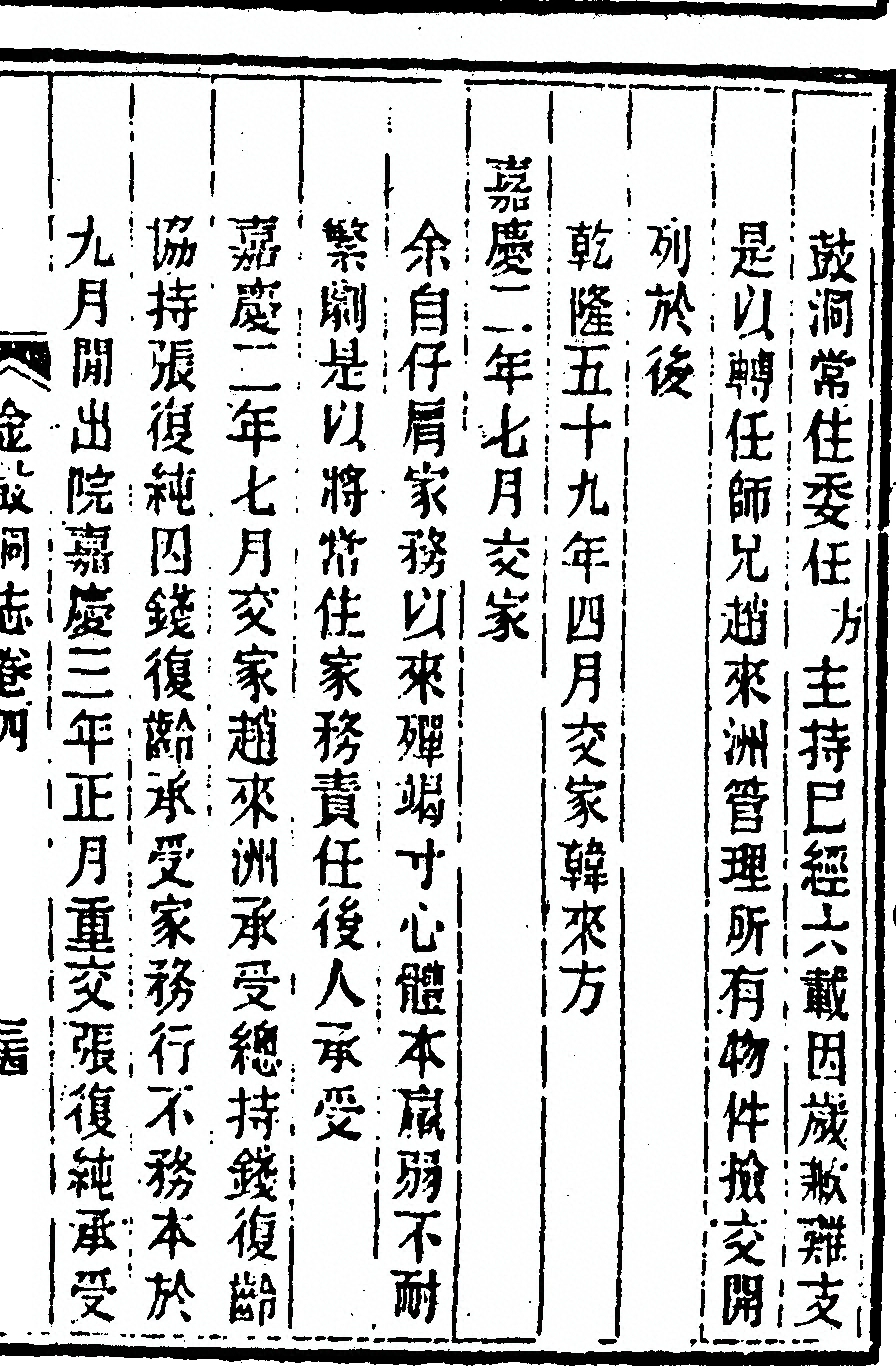 鼓洞常住委任方主持已經六載因歲歉難支
是以轉任師兄趙來洲管理所有物件撿交開
列於後
乾隆五十九年四月交家韓來方
嘉慶二年七月交家
余自仔肩家務以來殫竭寸心體本羸弱不耐
繁劇是以將常住家務責任後人承受
嘉慶二年七月交家趙來洲承受總持錢復齡
協持張復純因錢復齡承受家務行不務本於
九月閒出院嘉慶三年正月重交張復純承受
金鼓洞志卷四